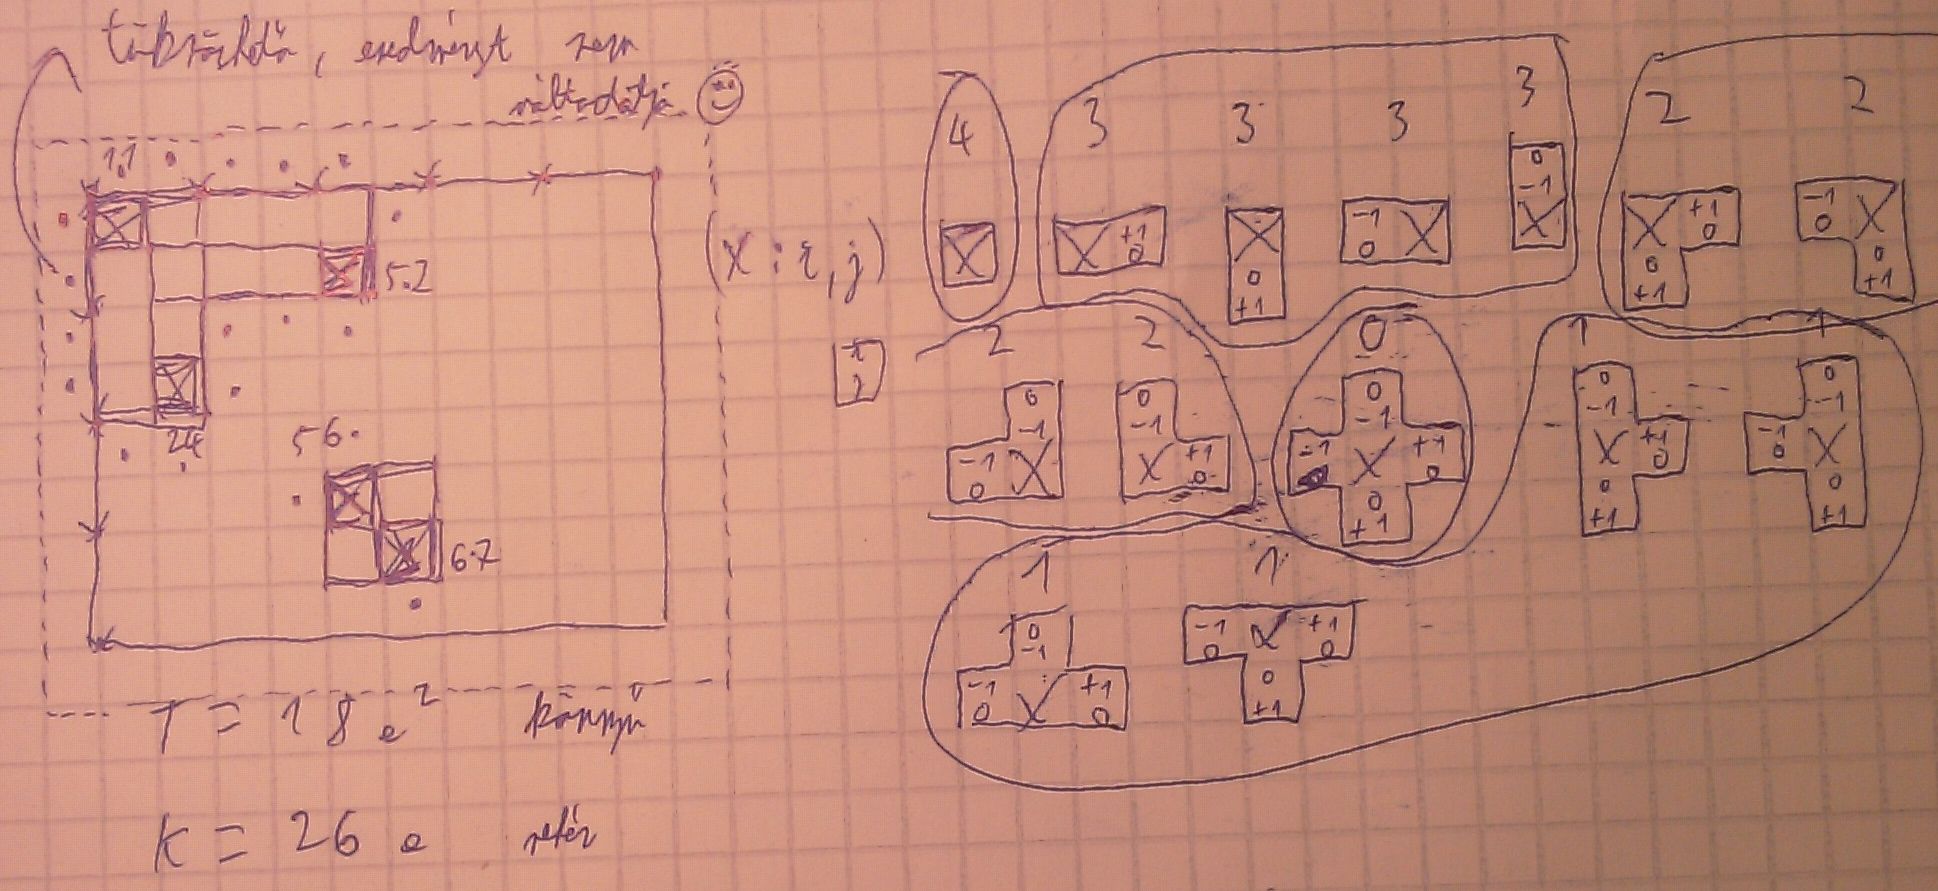 tükröződő, eredményt nem
változtatja
1,1
5.2
24
56.
6.7
T = 18 e² könnyű
K = 26 e nehéz
(X : i, j)
4 3 3 3 3 2 2
X
X +1 0
X 0 +1
-1 0 X
0 -1 X
X +1 0 0 +1
-1 0 X 0 +1
2 2 0 1 1
0 -1 -1 0 X
0 -1 X +1 0
0 -1 -1 0 X +1 0 0 +1
0 -1 X +1 0 0 +1
0 -1 -1 0 X 0 +1
1 1
0 -1 -1 0 X +1 0
-1 0 X +1 0 0 +1